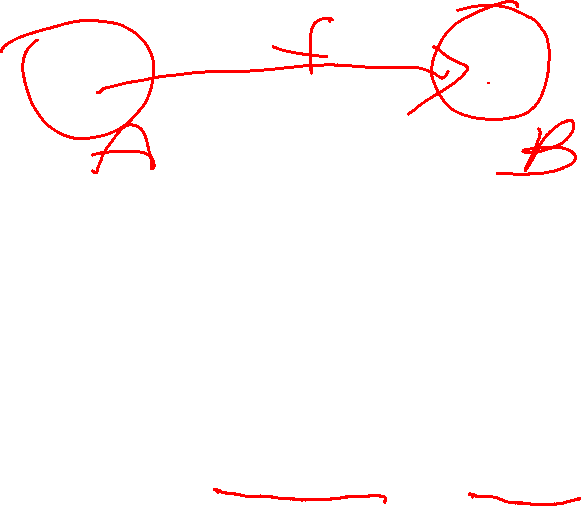 f
A
B